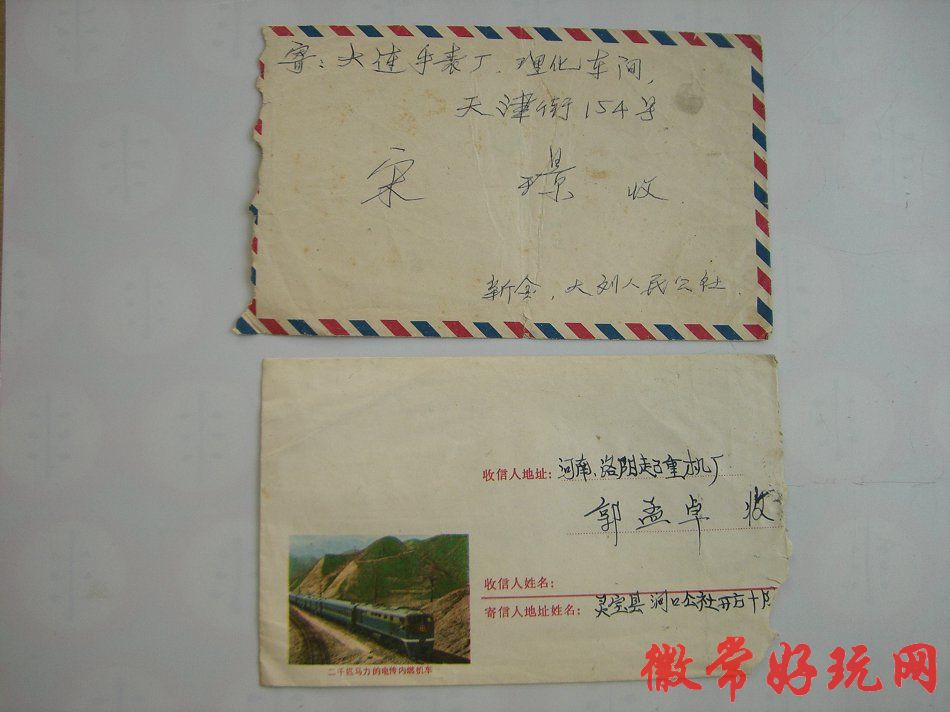 寄：大连手表厂.理化车间,
天津街154号
宋 璟 收
新金,大刘人民公社
收信人地址：河南、洛阳起重机厂
郭孟卓 收
收信人姓名：
寄信人地址姓名：灵宝县 涧口公社开方十队
二千匹马力的电传内燃机车
徽常好玩网